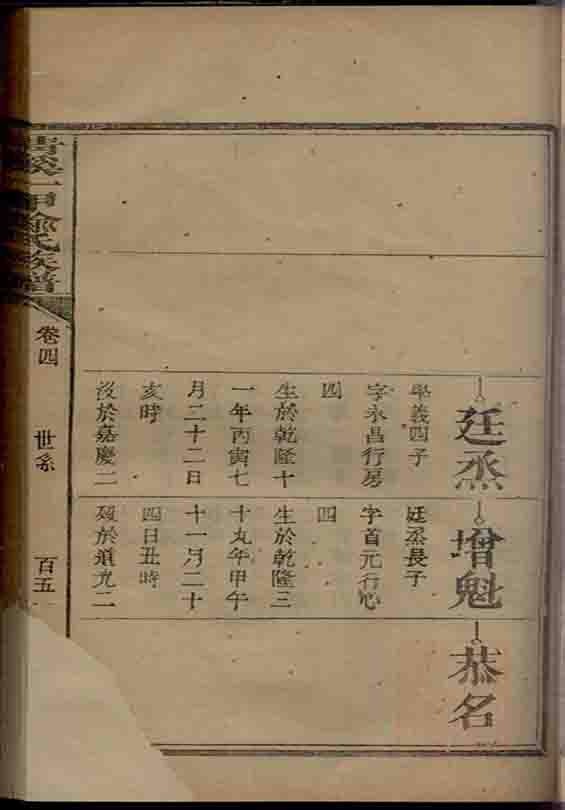 廷烝
義四子
字永昌行房
四
生於乾隆十
一年丙寅七
月二十二日
亥時
没於嘉慶二
增魁
廷烝長子
字首元行心
四
生於乾隆三
十九年甲午
十一月二十
四日丑時
歿於道光二
恭名
溪一甲氏族譜
卷四
世系
百五